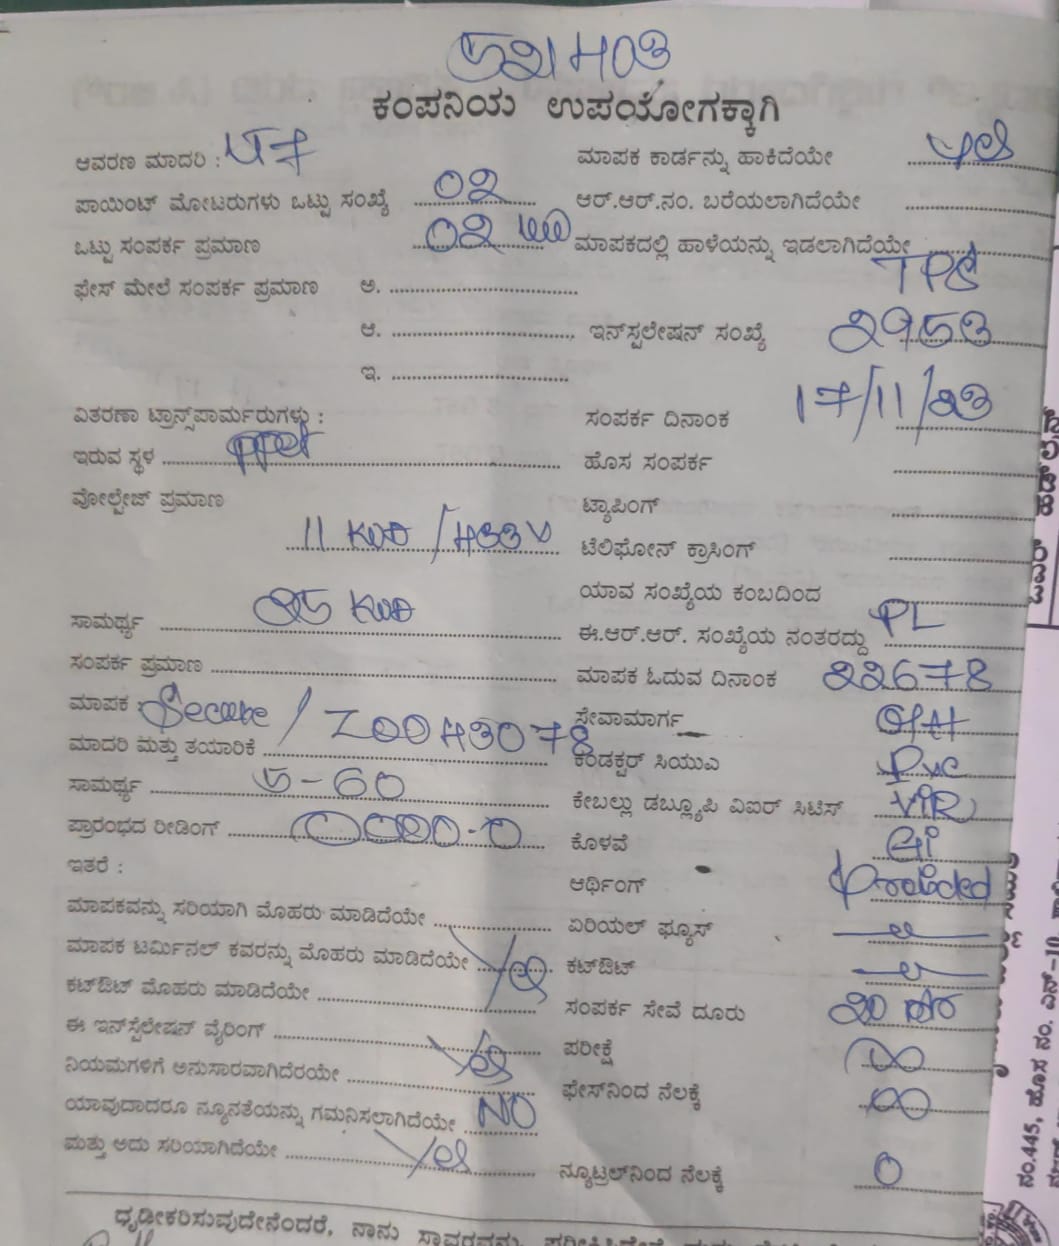 521403
ಕಂಪನಿಯ ಉಪಯೋಗಕ್ಕಾಗಿ
ಆವರಣ ಮಾದರಿ :
ಮಾಪಕ ಕಾರ್ಡನ್ನು ಹಾಕಿದೆಯೇ yes
ಪಾಯಿಂಟ್ ಮೋಟರುಗಳು ಒಟ್ಟು ಸಂಖ್ಯೆ 02
ಆರ್.ಆರ್.ನಂ. ಬರೆಯಲಾಗಿದೆಯೇ
ಒಟ್ಟು ಸಂಪರ್ಕ ಪ್ರಮಾಣ 02
ಮಾಪಕದಲ್ಲಿ ಹಾಳೆಯನ್ನು ಇಡಲಾಗಿದೆಯೇ
ಫೇಸ್ ಮೇಲೆ ಸಂಪರ್ಕ ಪ್ರಮಾಣ ಅ.
ಆ.
ಇನ್‌ಸ್ಟಲೇಷನ್ ಸಂಖ್ಯೆ 2953
ಇ.
ವಿತರಣಾ ಟ್ರಾನ್ಸ್‌ಫಾರ್ಮರುಗಳು :
ಸಂಪರ್ಕ ದಿನಾಂಕ 17/11/23
ಇರುವ ಸ್ಥಳ
ಹೊಸ ಸಂಪರ್ಕ
ವೋಲ್ಟೇಜ್ ಪ್ರಮಾಣ
ಟ್ಯಾಪಿಂಗ್
11 KVA /433V
ಟೆಲಿಫೋನ್ ಕ್ರಾಸಿಂಗ್
ಯಾವ ಸಂಖ್ಯೆಯ ಕಂಬದಿಂದ
ಸಾಮರ್ಥ್ಯ 25 KVA
ಈ.ಆರ್.ಆರ್. ಸಂಖ್ಯೆಯ ನಂತರದ್ದು PL
ಸಂಪರ್ಕ ಪ್ರಮಾಣ
ಮಾಪಕ ಓದುವ ದಿನಾಂಕ 22678
ಮಾಪಕ : Secure / Z0043078
ಸೇವಾಮಾರ್ಗ OH
ಮಾದರಿ ಮತ್ತು ತಯಾರಿಕೆ
ಕಂಡಕ್ಟರ್ ಸಿಯುಎ Pvc
ಸಾಮರ್ಥ್ಯ 5-60
ಕೇಬಲ್ಲು ಡಬ್ಲ್ಯೂಪಿ ವಿಐರ್ ಸಿಟಿಸ್ VIR
ಪ್ರಾರಂಭದ ರೀಡಿಂಗ್ 0000.0
ಕೊಳವೆ Gi
ಇತರೆ :
ಆರ್ಥಿಂಗ್ Provided
ಮಾಪಕವನ್ನು ಸರಿಯಾಗಿ ಮೊಹರು ಮಾಡಿದೆಯೇ
ಏರಿಯಲ್ ಫ್ಯೂಸ್
ಮಾಪಕ ಟರ್ಮಿನಲ್ ಕವರನ್ನು ಮೊಹರು ಮಾಡಿದೆಯೇ Yes
ಕಟ್‌ಔಟ್
ಕಟ್‌ಔಟ್ ಮೊಹರು ಮಾಡಿದೆಯೇ
ಸಂಪರ್ಕ ಸೇವೆ ದೂರು
ಈ ಇನ್‌ಸ್ಟೆಲೇಷನ್ ವೈರಿಂಗ್ Yes
ಪರೀಕ್ಷೆ ∞
ನಿಯಮಗಳಿಗೆ ಅನುಸಾರವಾಗಿದೆರಯೇ
ಫೇಸ್‌ನಿಂದ ನೆಲಕ್ಕೆ ∞
ಯಾವುದಾದರೂ ನ್ಯೂನತೆಯನ್ನು ಗಮನಿಸಲಾಗಿದೆಯೇ NO
ಮತ್ತು ಅದು ಸರಿಯಾಗಿದೆಯೇ Yes
ನ್ಯೂಟ್ರಲ್‌ನಿಂದ ನೆಲಕ್ಕೆ 0
ಧೃಡೀಕರಿಸುವುದೇನೆಂದರೆ, ನಾನು